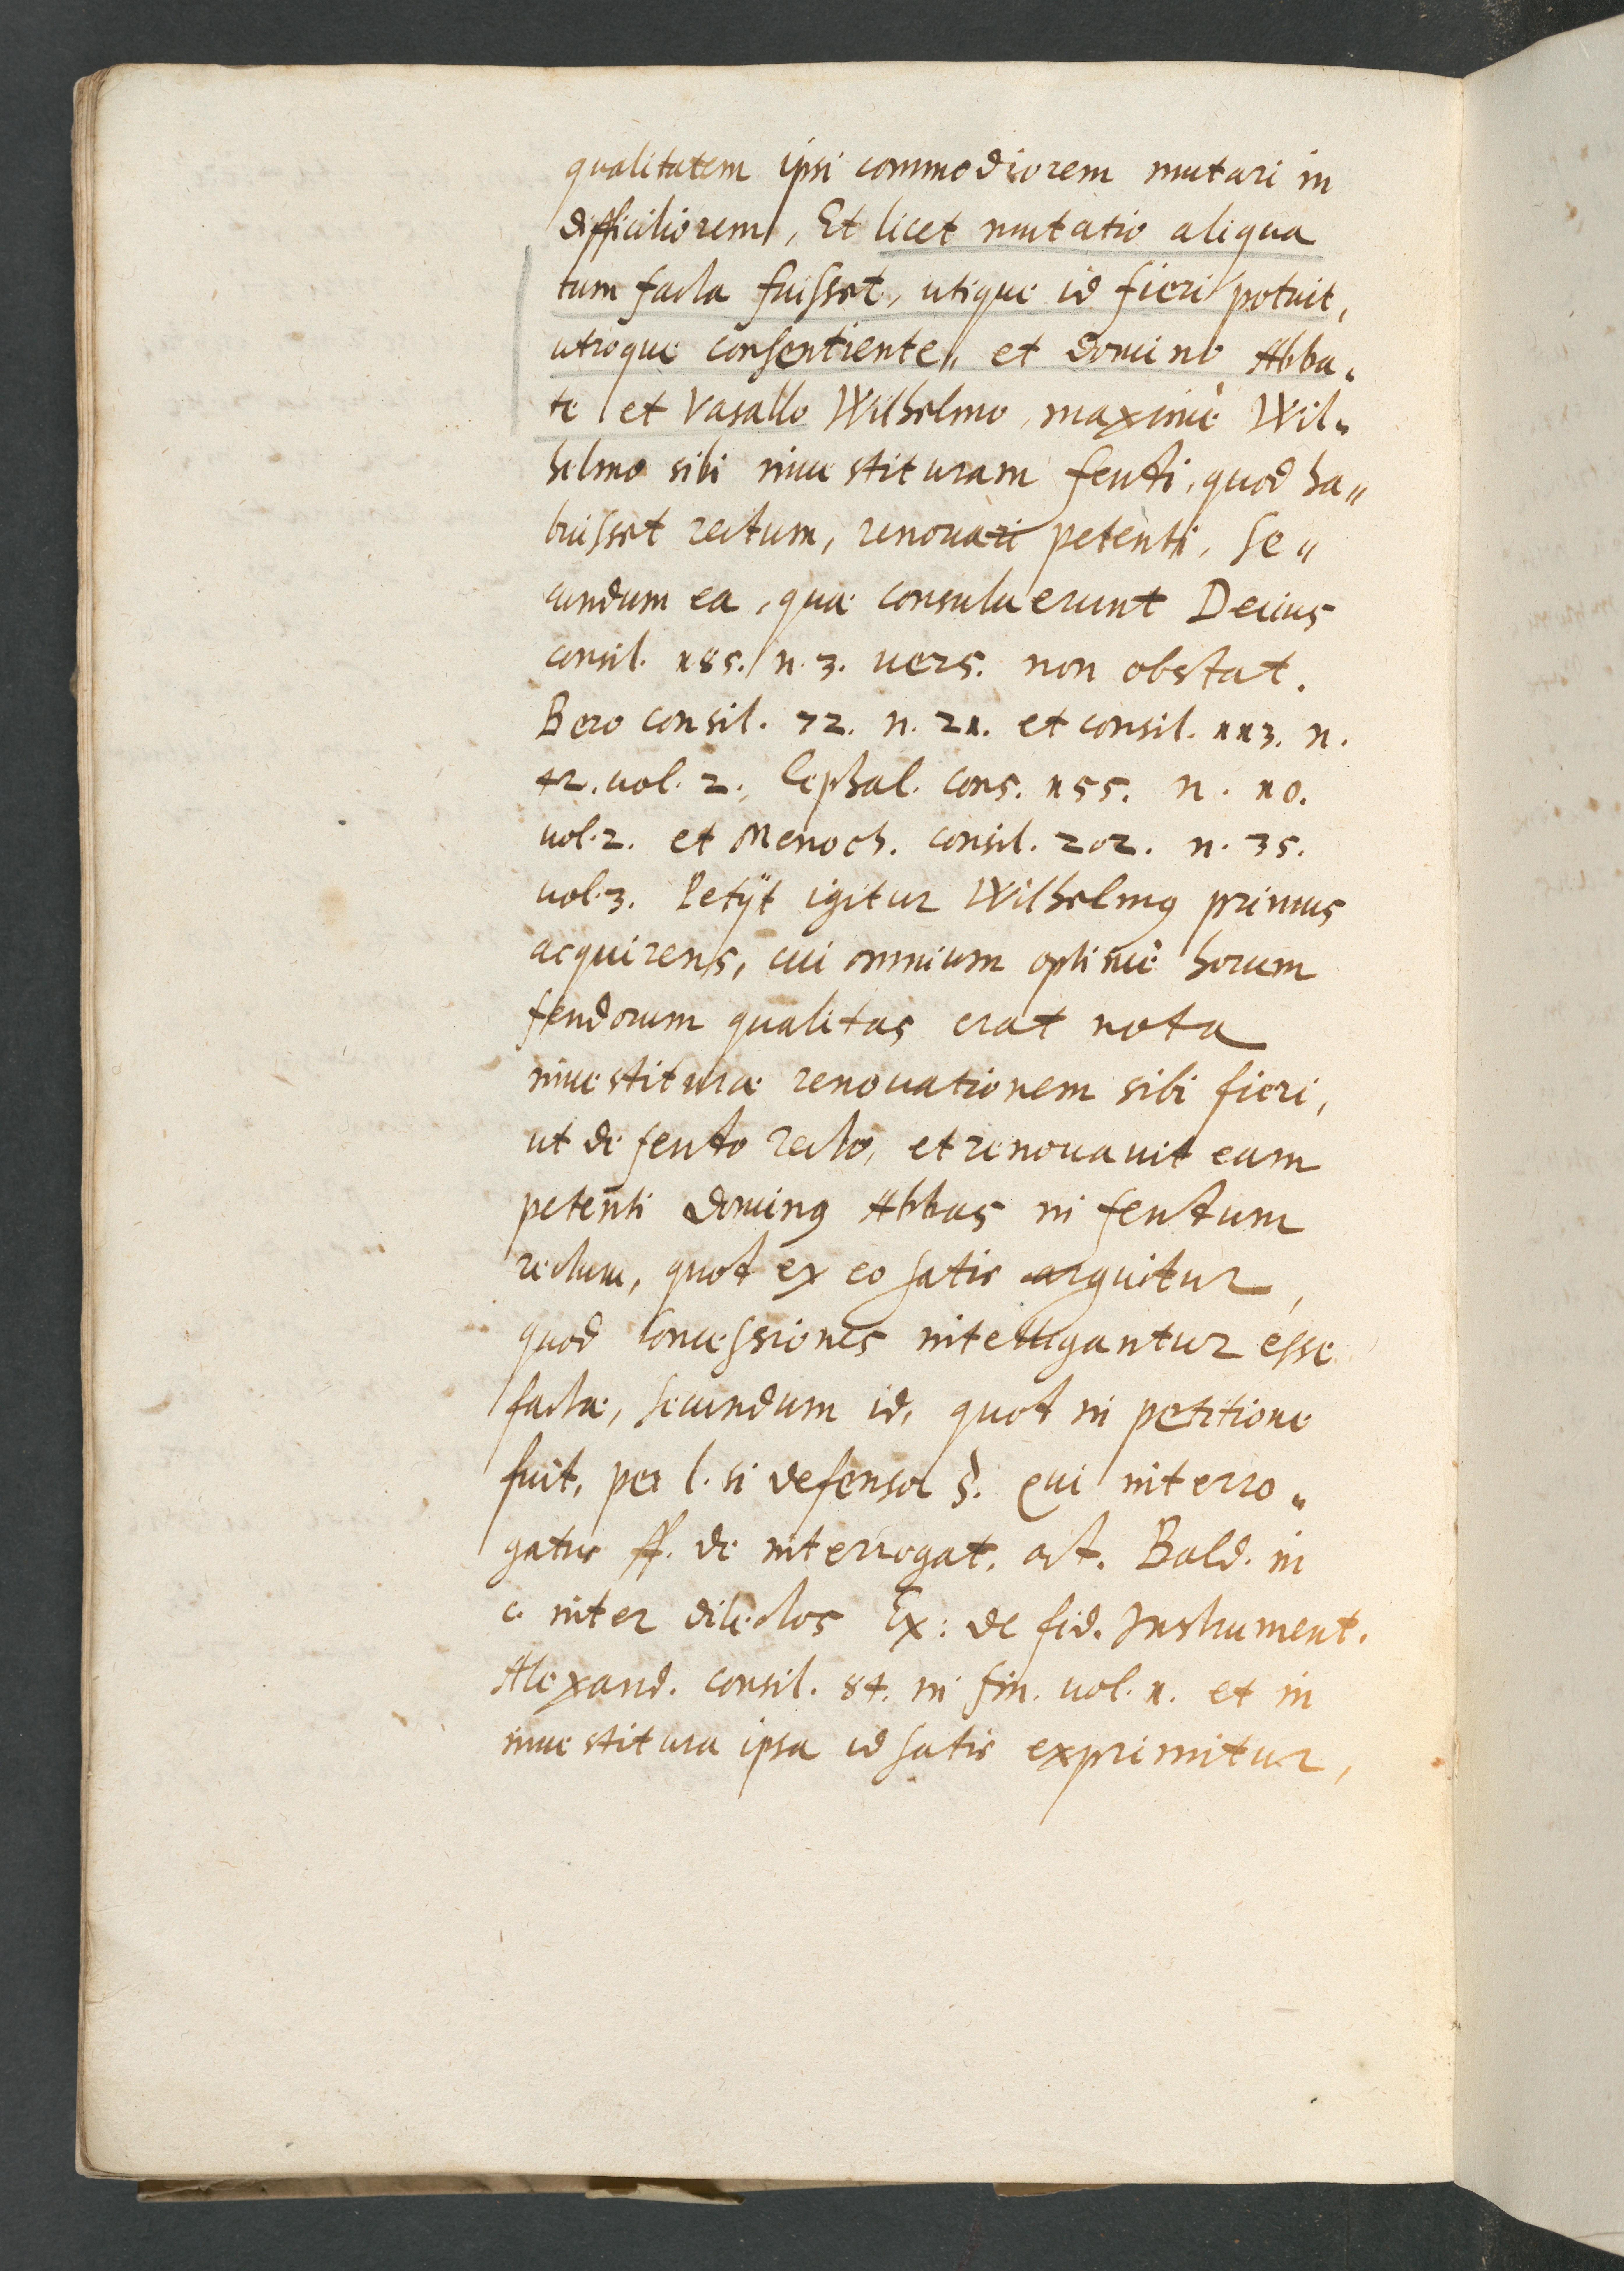 qualitatem ipsi commodiorem mutari in
difficiliorem, Et licet mutatio aliqua
tum facta fuisset, utique id fieri potuit,
utroque consentiente, et domino Abba-
te et Vasallo Wilhelmo, maximè Wil-
helmo sibi inuestituram feudi, quod ha-
buisset rectum, renouari petenti, Se-
cundum ea, quæ consuluerunt Decius
consil. 185. n. 3. uers. non obstat.
Bero consil. 72. n. 21. et consil. 113. n.
42. uol. 2. Cephal. cons. 155. n. 10.
uol. 2. et Menoch. consil. 202. n. 35.
uol. 3. Petijt igitur Wilhelmus primus
acquirens, cui omnium optimè horum
feudorum qualitas erat nota
inuestituræ renouationem sibi fieri,
ut de feudo recto, et renouauit eam
petenti dominus Abbas in feudum
rectum, quod ex eo satis arguitur,
quod concessiones intelligantur esse
factæ, secundum id, quod in petitione
fuit, per l. si defensor §. qui interro-
gatus ff. de interrogat. act. Bald. in
c. inter dilectos Ex: de fid. Instrument.
Alexand. consil. 84. in fin. uol. 1. et in
inuestitura ipsa id satis exprimitur,